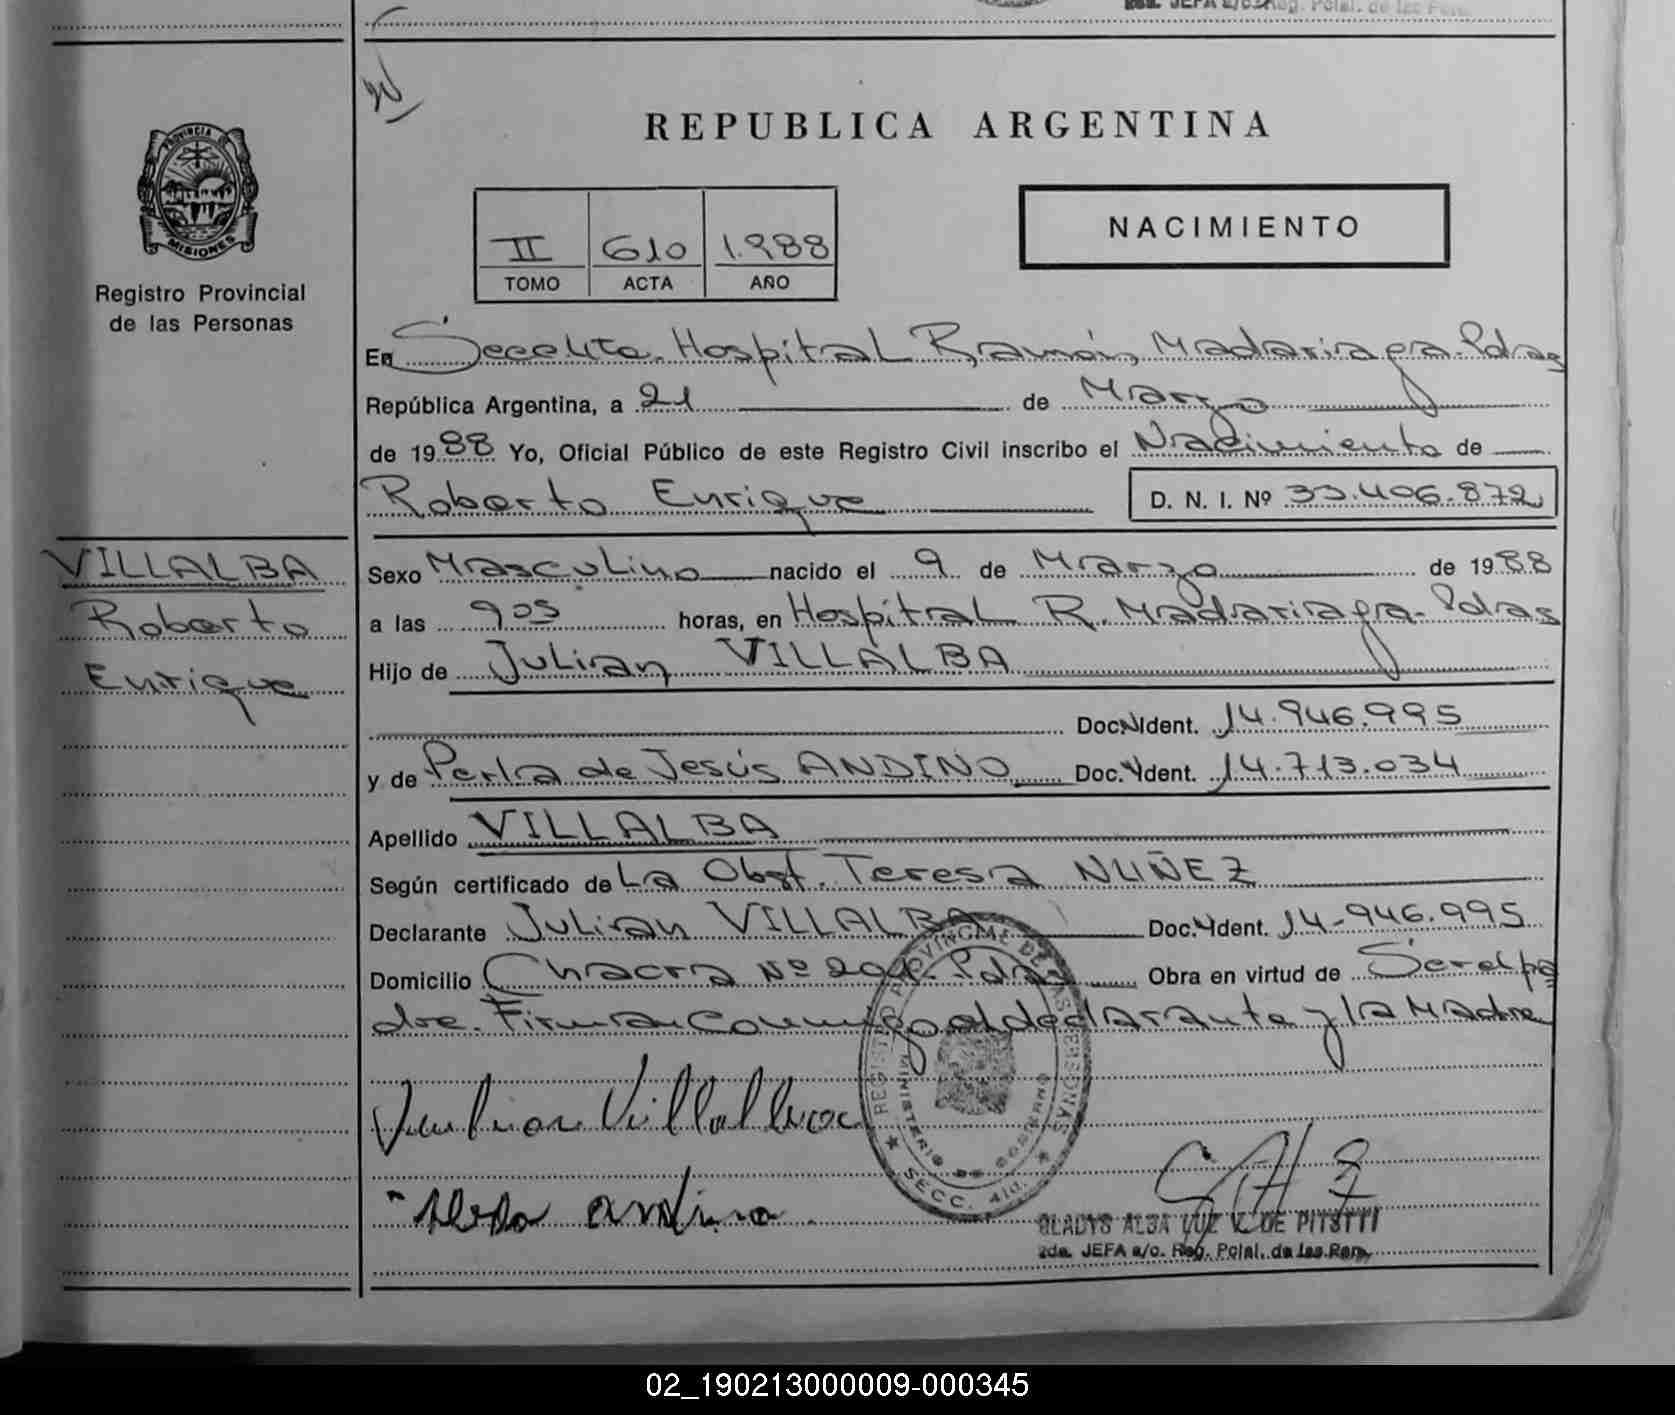 2da. JEFA a/c. Reg. Pcial. de las Pers.
PROVINCIA DE
MISIONES
Registro Provincial
de las Personas
REPUBLICA ARGENTINA
II 610 1.988
TOMO ACTA AÑO
NACIMIENTO
En Hospital Ramón Madariaga. Pdas
República Argentina, a 21 de Marzo
de 1988 Yo, Oficial Público de este Registro Civil inscribo el Nacimiento de
Roberto Enrique D. N. I. Nº 33.406.872
VILLALBA
Roberto
Enrique
Sexo Masculino nacido el 9 de Marzo de 1988
a las 905 horas, en Hospital R. Madariaga. Pdas
Hijo de Julian VILLALBA
Doc. Ident. 14.946.995
y de Perla de Jesús ANDINO Doc. Ident. 14.713.034
Apellido VILLALBA
Según certificado de La Obst. Teresa NUÑEZ
Declarante Julian VILLALBA Doc. Ident. 14-946.995
Domicilio Chacra Nº 204. Pdas Obra en virtud de Ser el pa
dre. Firman conmigo el declarante y la Madre
REGISTRO PROVINCIAL DE LAS PERSONAS
MINISTERIO DE GOBIERNO
SECC. 4ta.
Julian Villalba
Perla andino
GLADYS ALBA LUZ V. DE PITOTTI
2da. JEFA a/c. Reg. Pcial. de las Pers.
02_190213000009-000345